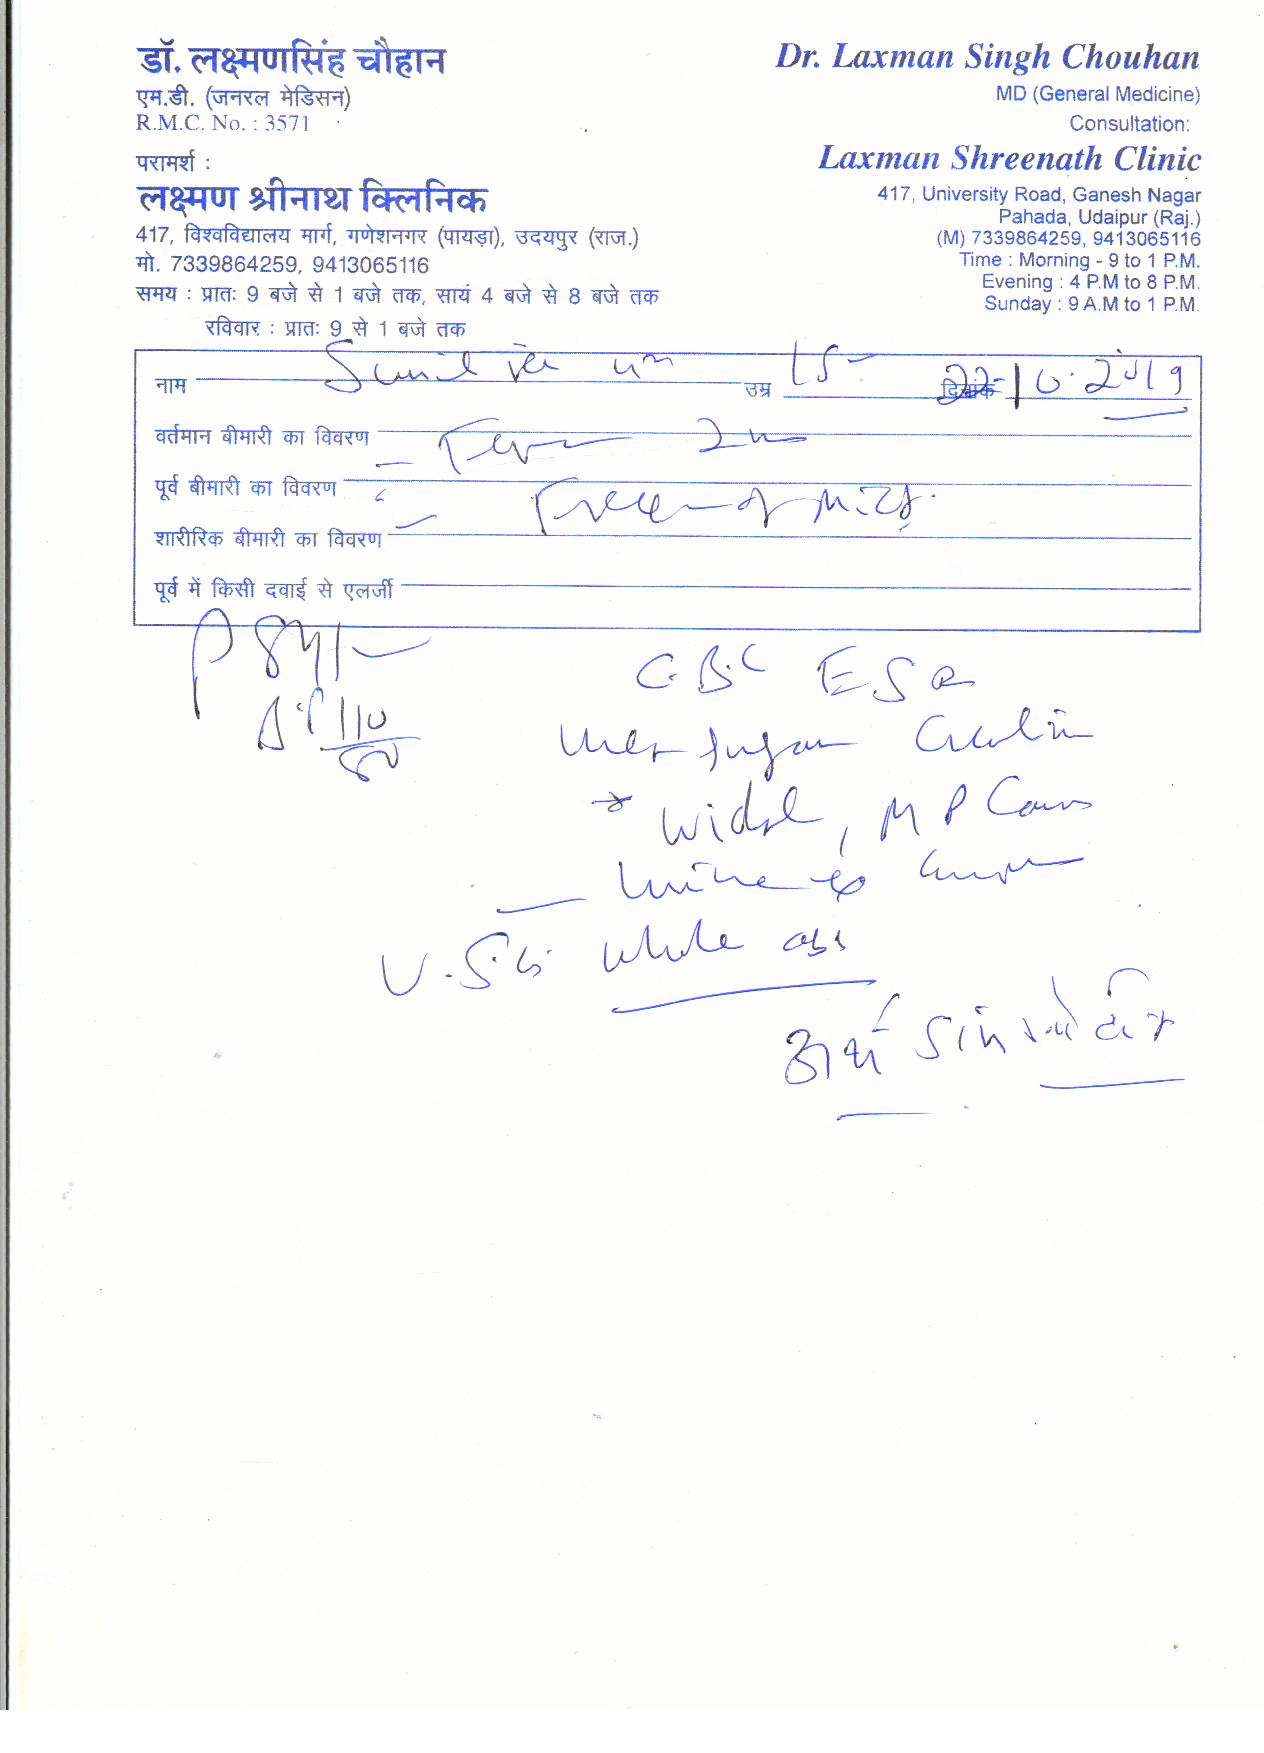 डॉ. लक्ष्मणसिंह चौहान
एम.डी. (जनरल मेडिसन)
R.M.C. No. : 3571
परामर्श :
लक्ष्मण श्रीनाथ क्लिनिक
417, विश्वविद्यालय मार्ग, गणेशनगर (पायड़ा), उदयपुर (राज.)
मो. 7339864259, 9413065116
समय : प्रातः 9 बजे से 1 बजे तक, सायं 4 बजे से 8 बजे तक
रविवार : प्रातः 9 से 1 बजे तक
Dr. Laxman Singh Chouhan
MD (General Medicine)
Consultation:
Laxman Shreenath Clinic
417, University Road, Ganesh Nagar
Pahada, Udaipur (Raj.)
(M) 7339864259, 9413065116
Time : Morning - 9 to 1 P.M.
Evening : 4 P.M to 8 P.M.
Sunday : 9 A.M to 1 P.M.
नाम Sunil उम्र दिनांक 22-10-2019
वर्तमान बीमारी का विवरण Fever
पूर्व बीमारी का विवरण
शारीरिक बीमारी का विवरण
पूर्व में किसी दवाई से एलर्जी
P 84/-
B.P 110
C.B.C ESR
Sugar
Widal, M P
Urine
U.S.G. whole abd